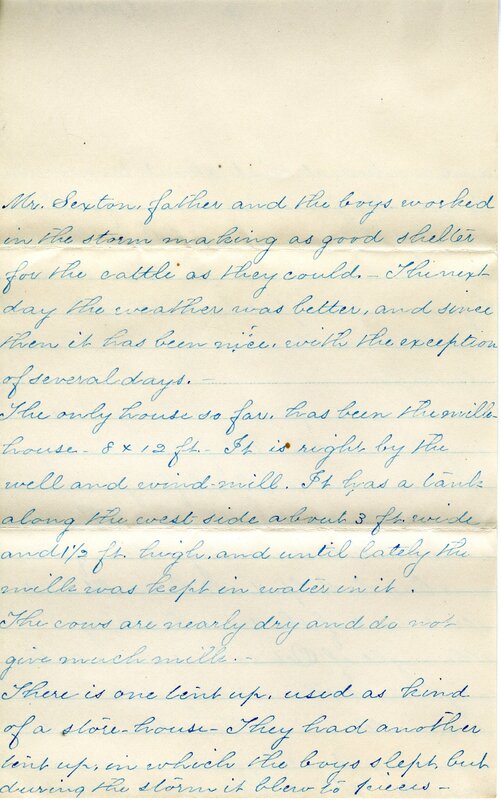 Mr. Sexton, father and the boys worked
in the storm making as good shelter
for the cattle as they could. - The next
day the weather was better, and since
then it has been nice, with the exception
of several days. -
The only house so far, has been the milk-
house - 8 x 12 ft - It is right by the
well and wind-mill. It has a tank
along the west side about 3 ft. wide
and 1 1/2 ft. high, and until lately the
milk was kept in water in it.
The cows are nearly dry and do not
give much milk. -
There is one tent up, used as kind
of a store-house - They had another
tent up, in which the boys slept, but
during the storm it blew to pieces -